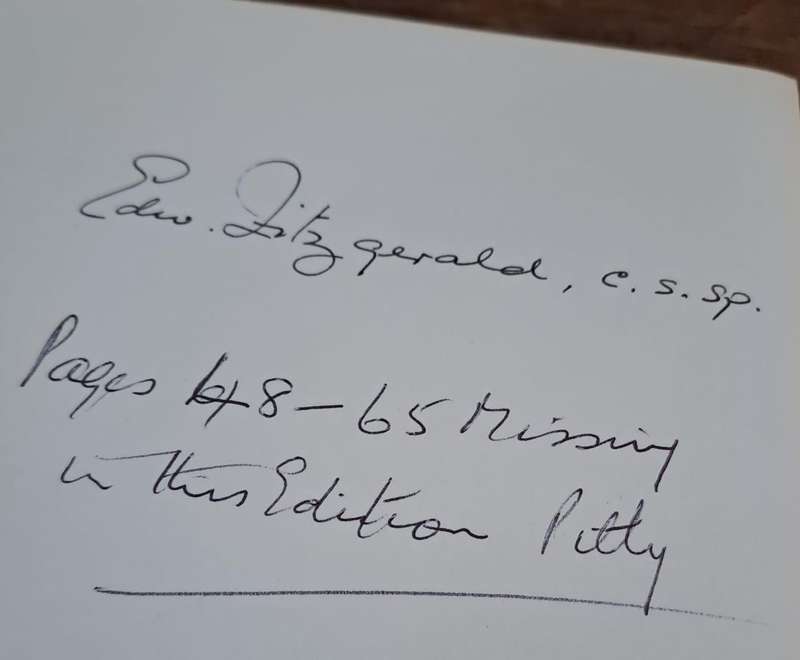 Edw. Fitzgerald, c.s.sp.
Pages 48-65 Missing
in this Edition Pitty